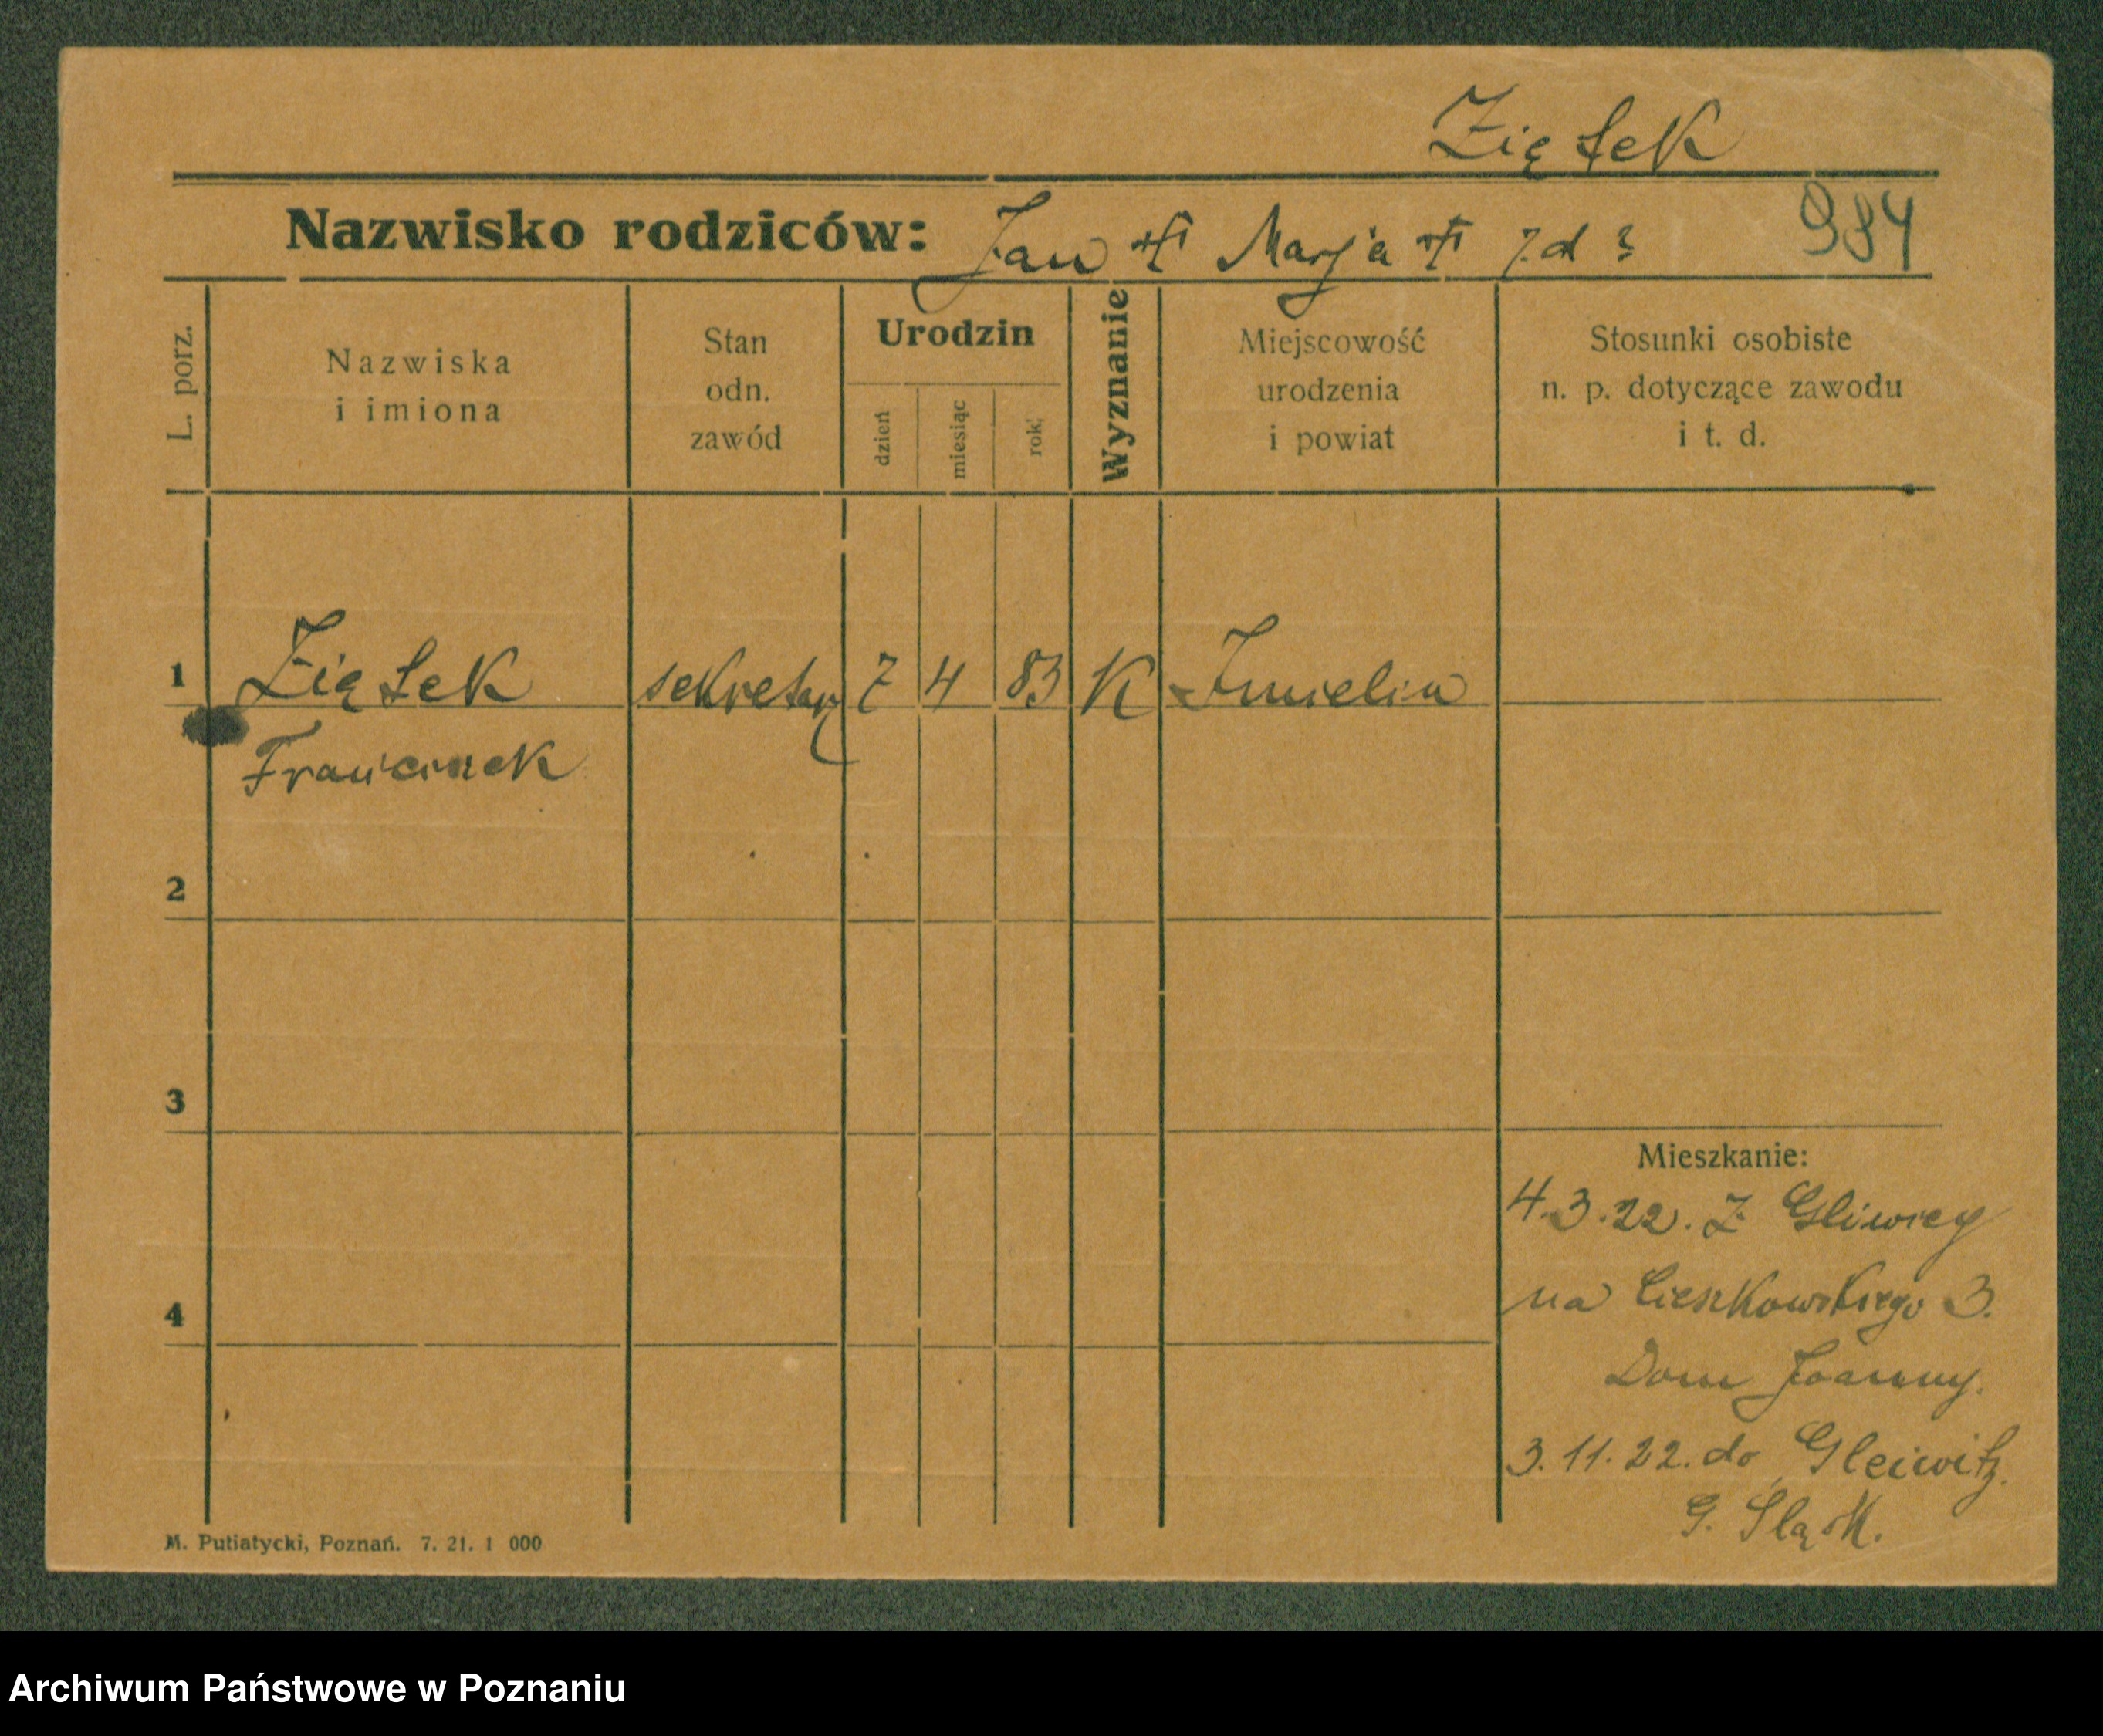 Ziętek
Nazwisko rodziców: Jan Marja z.d ?
984
L. porz.
Nazwiska
i imiona
Stan
odn.
zawód
Urodzin
dzień
miesiąc
rok
Wyznanie
Miejscowość
urodzenia
i powiat
Stosunki osobiste
n. p. dotyczące zawodu
i t. d.
1 Ziętek sekretarz 7 4 83 K Imielin
Franciszek
2
3
Mieszkanie:
4.3.22. Z Gliwicy
na Cieszkowskiego 3.
4
Dom Joanny.
3.11.22. do Gleiwitz.
G. Śląsk.
M. Putiatycki, Poznań. 7. 21. 1 000
Archiwum Państwowe w Poznaniu